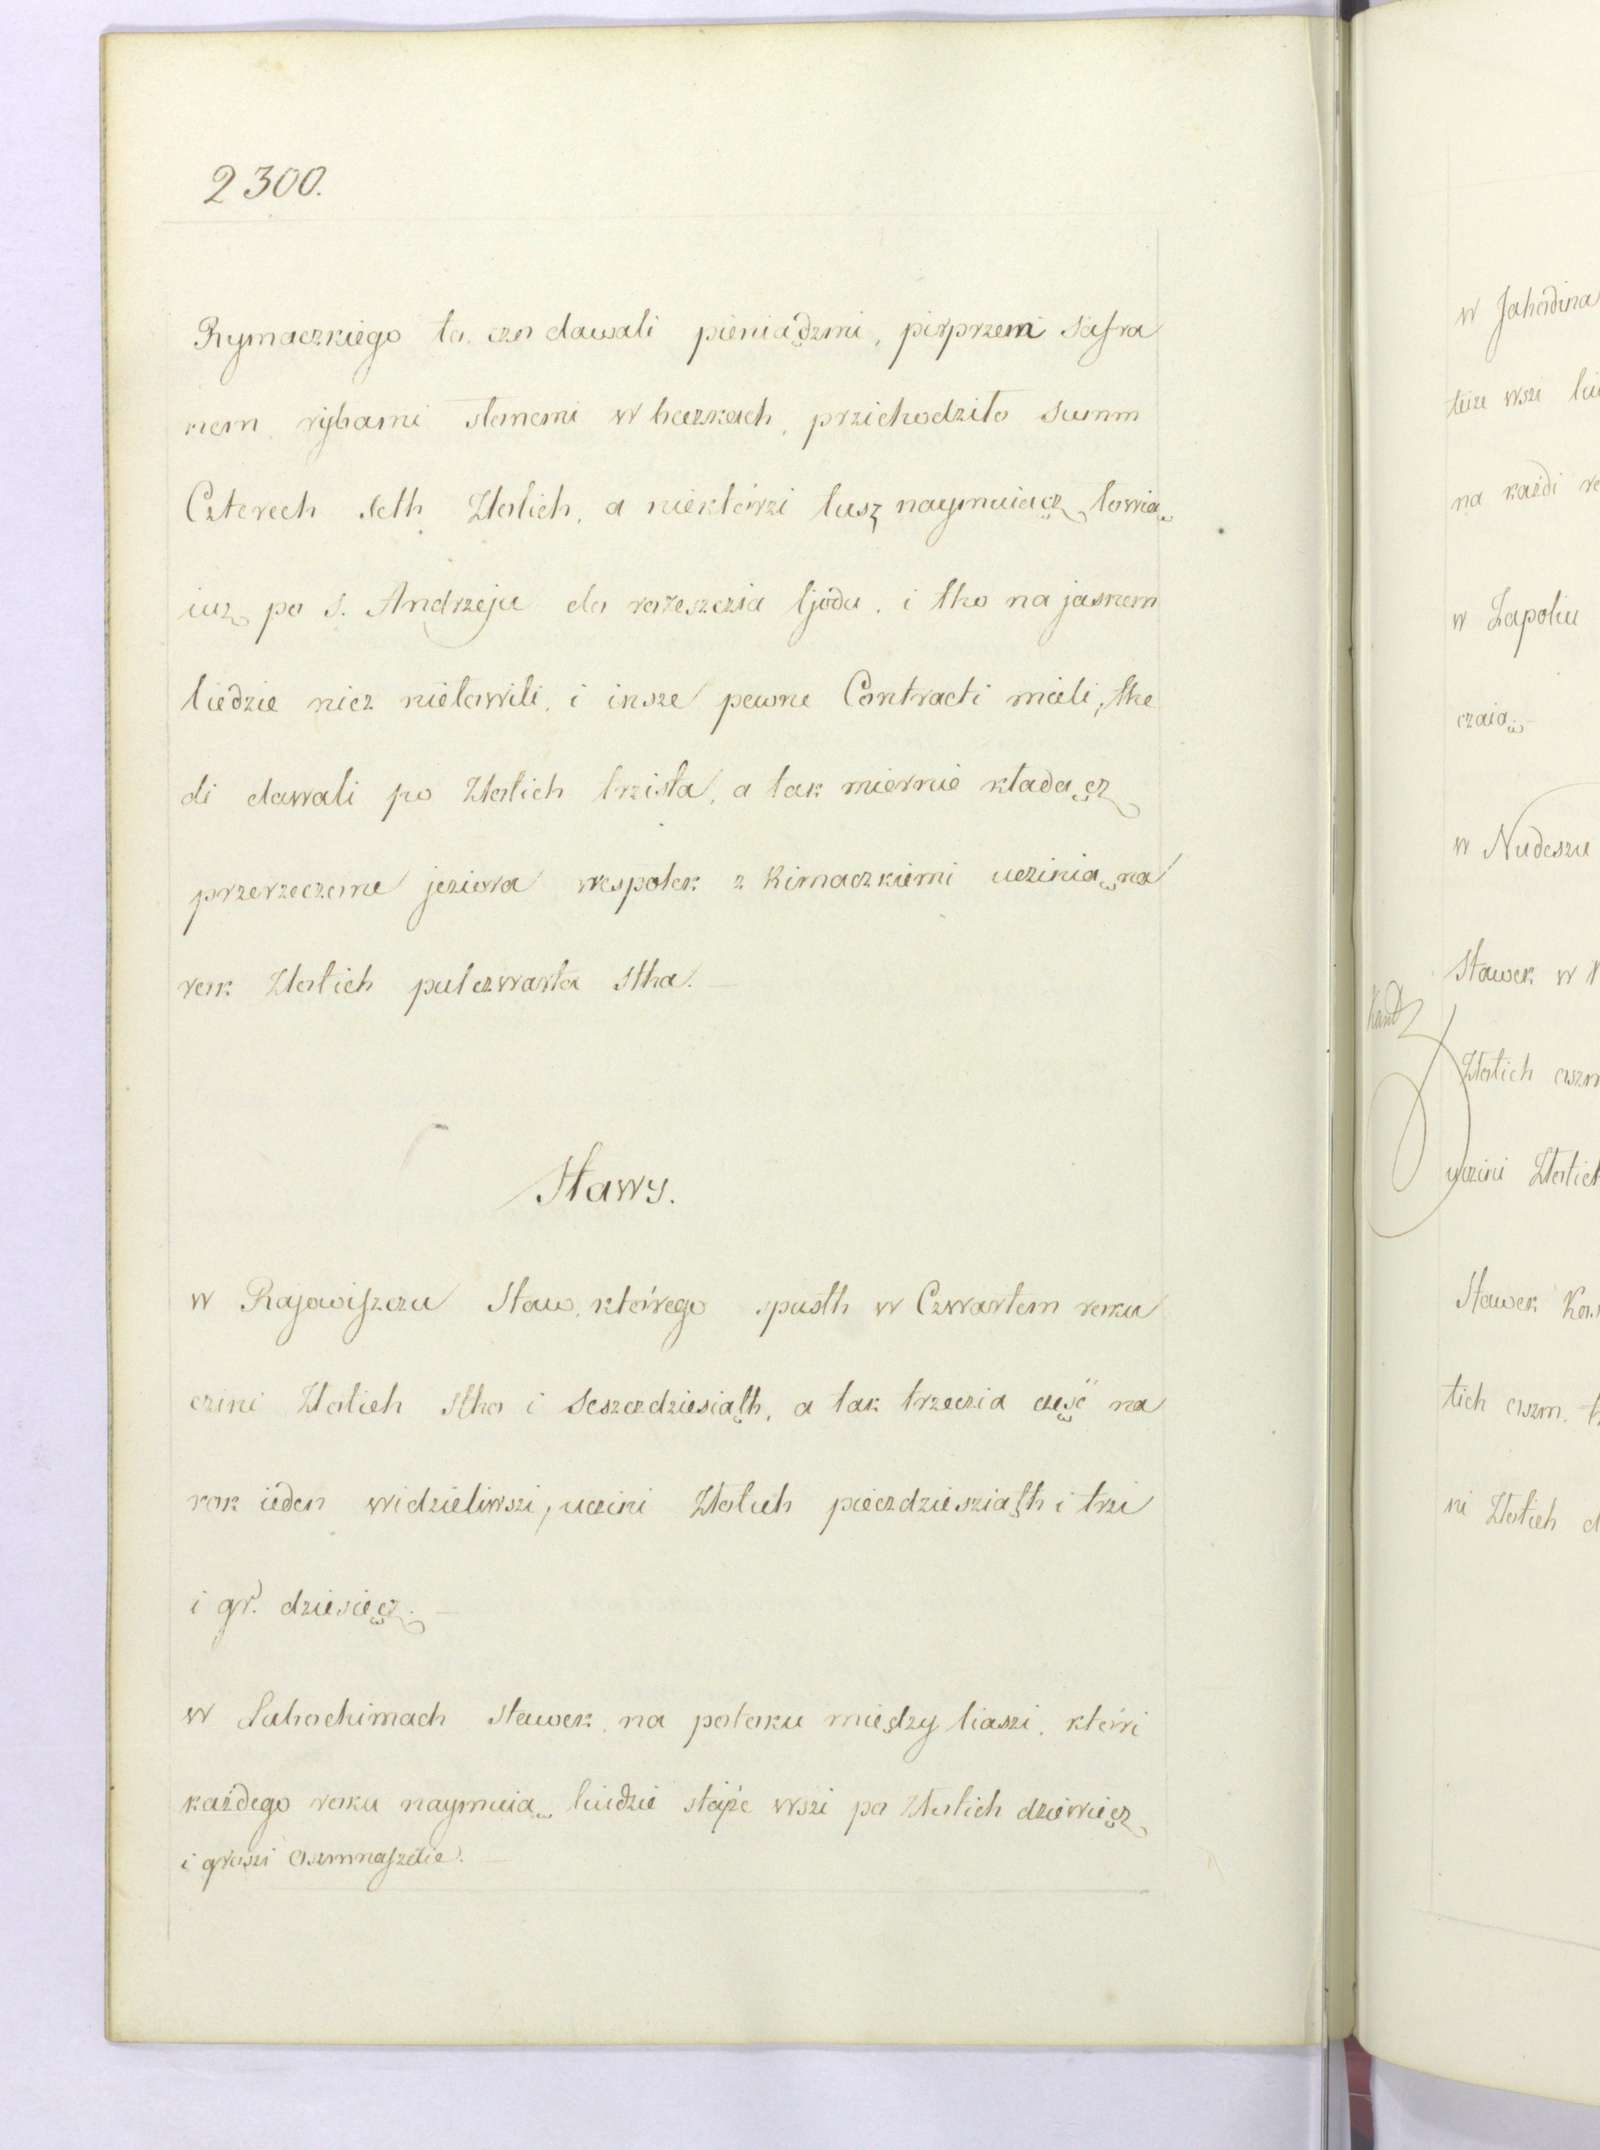 2300.
Rymaczkiego to, czo dawali pieniądzmi, pieprzem safra
nem, rybami słonemi w beczkach, przichodziło summ
Czterech seth Złotich, a niektórzi tusz naymuiącz, łowią
iuz po S. Andrzeju do rozeszczia ljodu, i tho na jasnem
liedzie nicz niełowili, i insze pewne Contracti mieli, the
di dawali po Złotich trzista, a tak miernie kładącz
przerzeczeme jeziora wespołek z Rimaczkiemi uczinią na
rok Złotich pułczwarta stha.
Stawy.
w Rajowiszczu Staw, którego spusth w Czwartem roku
czini Złotich stho i seszczdziesiąth, a tak trzeczia część na
rok ieden widzieliwszi, uczini Złotich pieczdziesziąth i trzi
i gr. dziesięcz.
w Sahochimach stawek, na potoku między liaszi, któri
każdego roku naymuią liudzie stąże wszi po Złotich dziewięcz
i groszi osmnaszcie.
w Jahodina
teize wszi
na każdi
w Zapoliu
czaią
w Nudeszu
Stawek w
Złotich
uczini Złotich
Stawek
tich oszm.
ni Złotich